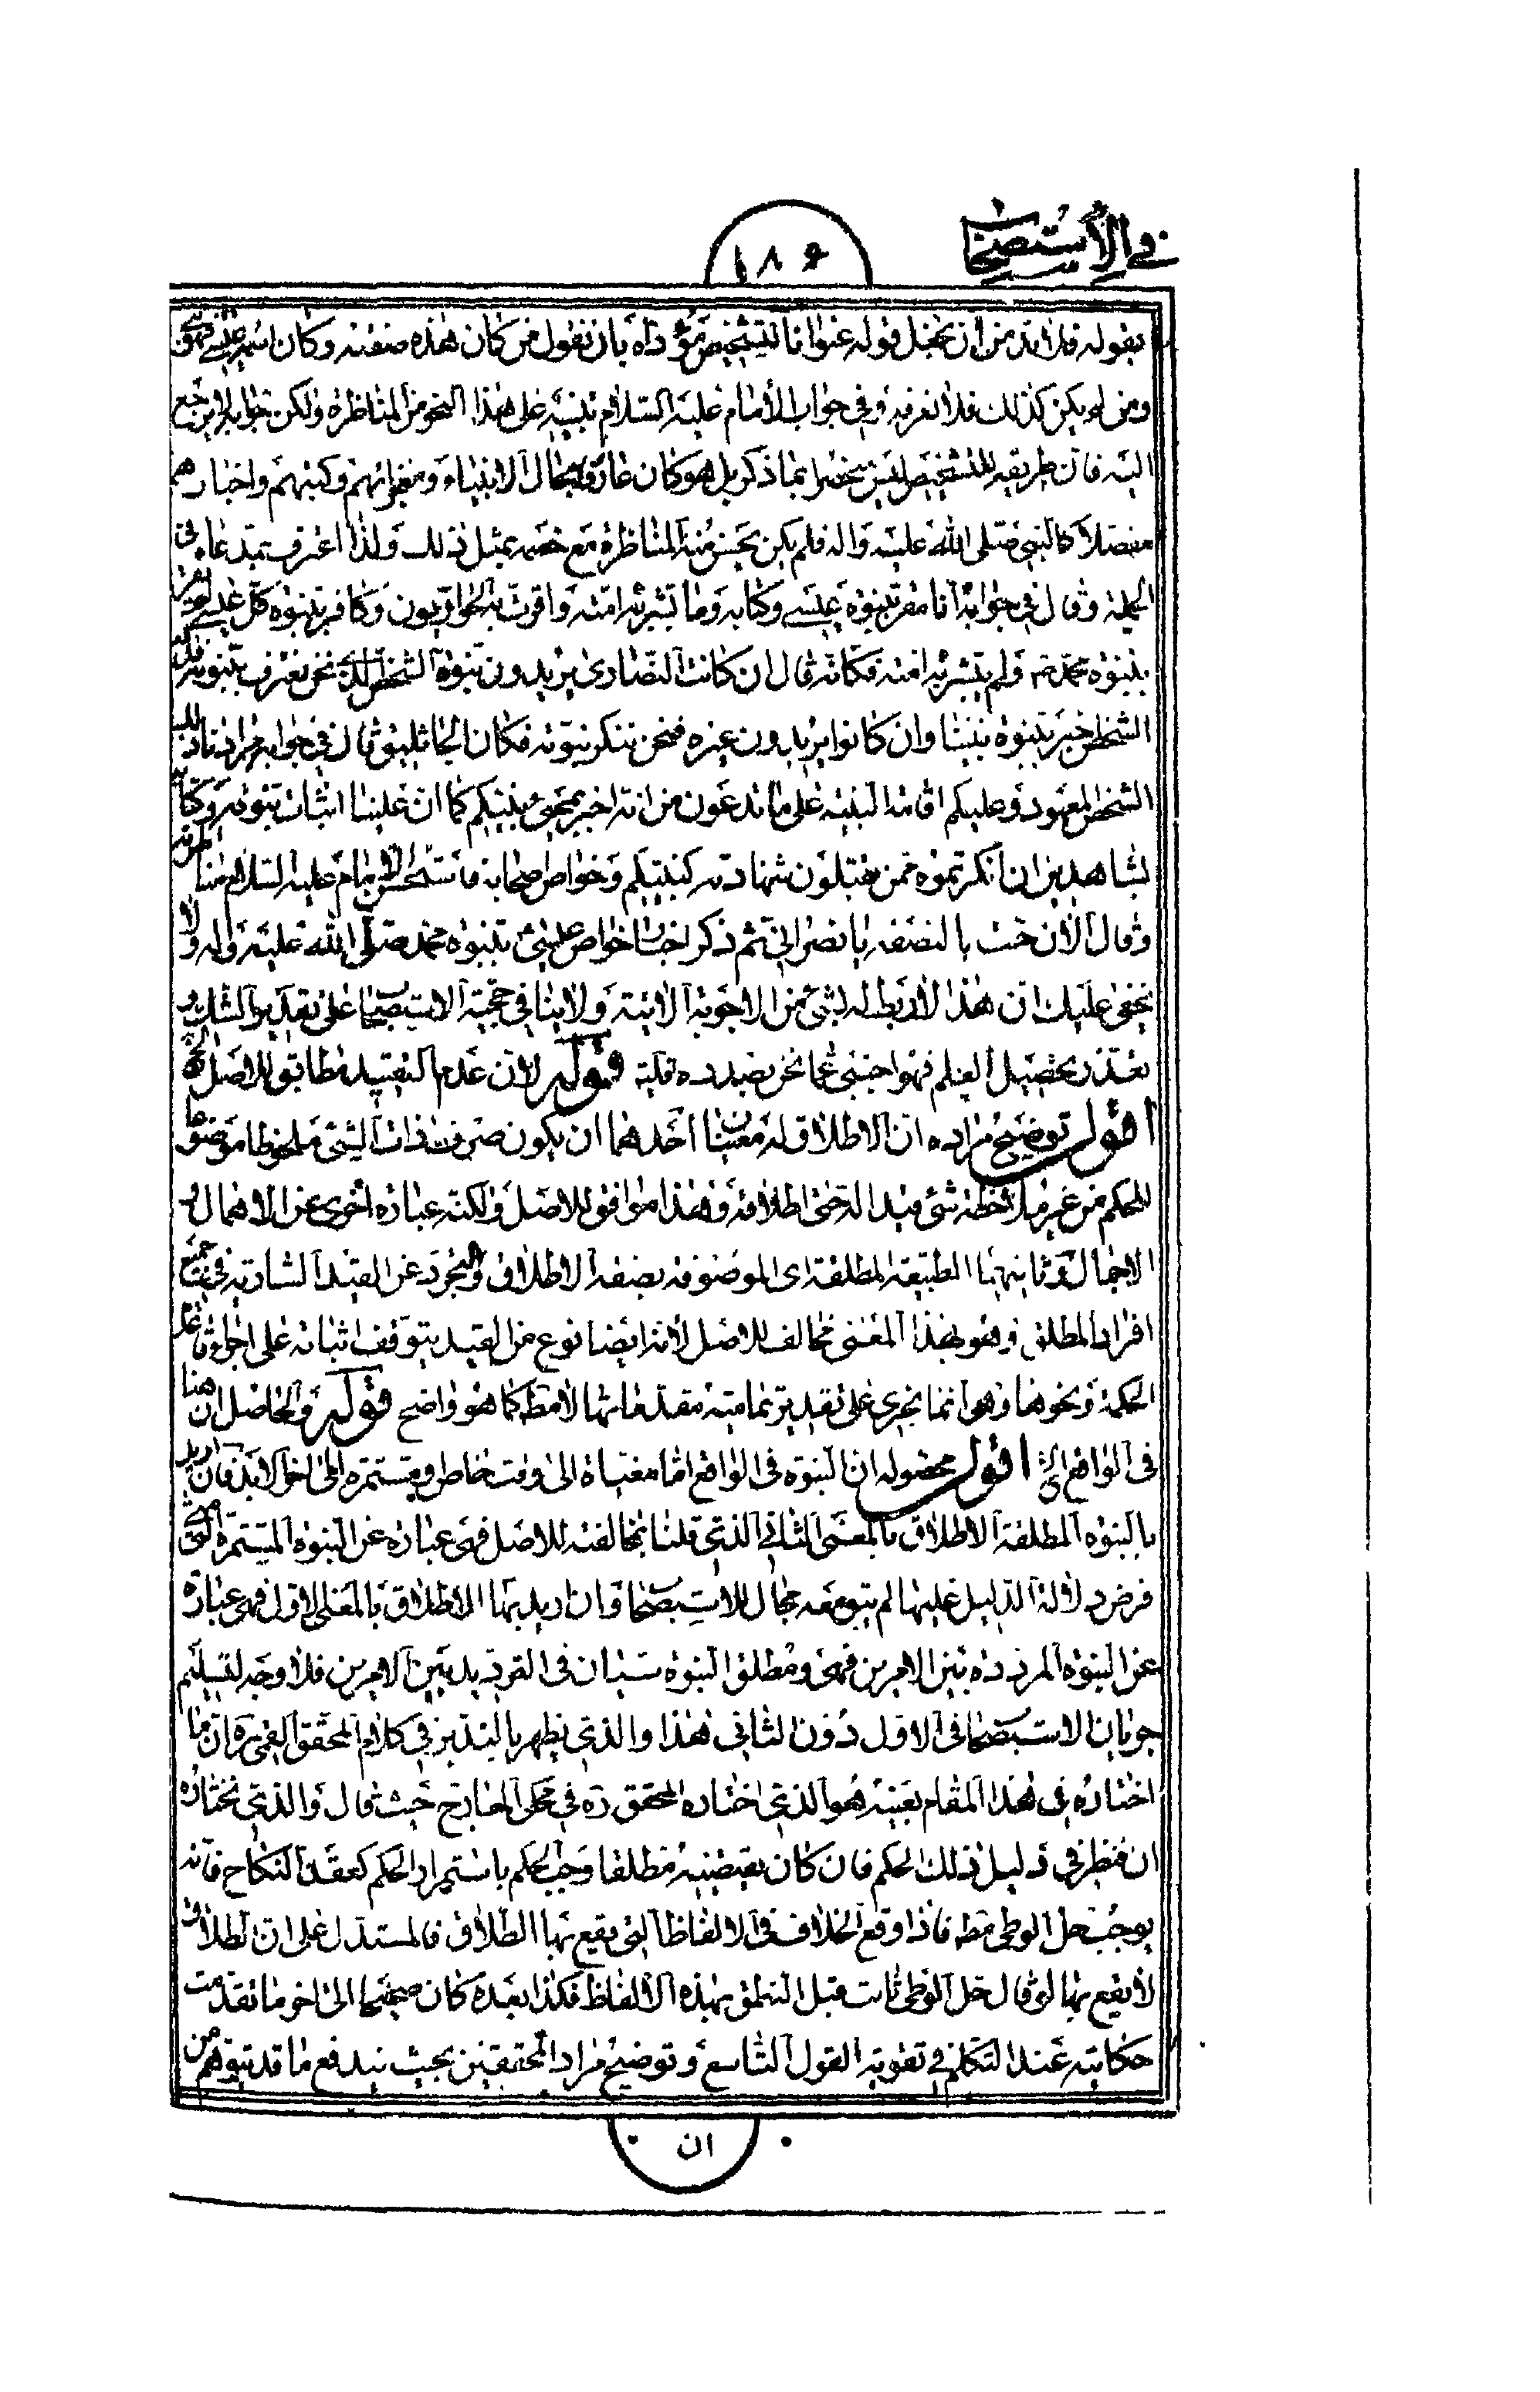 في الاستصحاب
١٨٩
بقوله فلا بد من ان يجعل قوله عنوانا لتشخيص مؤداه بان نقول من كان هذه صفته وكان اسمه عيسى فهو نبي
ومن لم يكن كذلك فلا نعرفه وفي جواب الأمام عليه السلام تنبيه على هذا النحو من المناظرة ولكن جوابه لم يرجع
اليه فان طريقه للتشخيص ليس منحصرا بما ذكر بل هو كان عارفا بحال الانبياء ومعجزاتهم وكتبهم واخبارهم
مفصلا كالنبي صلى الله عليه واله فلم يكن يحسن منه المناظرة مع خصمه بمثل ذلك ولذا اعترف بمدعاه في
الجملة وقال في جوابه انا مقر بنبوة عيسى وكتابه وما بشر به امته واقرت به الحواريون وكافر بنبوة كل عيسى لم يقر
بنبوة محمد ص ولم يبشر به امته فكانه قال ان كانت النصارى يريدون نبوة الشخص الذي نحن نعترف بنبوته فذلك
الشخص اخبر بنبوة نبينا وان كانوا يريدون غيره فنحن ننكر نبوته فكان الجاثليق قال في جوابه مرادنا ذلك
الشخص المعهود وعليكم اقامة البينة على ما تدعون من انه اخبر بمجيء نبيكم كما ان علينا اثبات نبوته وكتابه
بشاهدين ان انكرتموه ممن تقبلون شهادته كنبيكم وخواص اصحابه فاستحسن الامام عليه السلام منا
وقال الان جئت بالنصفه يا نصراني ثم ذكر اخبار خواص عيسى بنبوة محمد صلى الله عليه واله ولا
يخفى عليك ان هذا لا ربط له بشيء من الاجوبة الاتية ولا ينافي حجية الاستصحاب على تقدير الشك و
تعذر تحصيل العلم فهو اجنبي عما نحن بصدده قلبه قوله لان عدم التقييد مطابق للاصل الخ
اقول توضيح مراده ان الاطلاق له معنيان احدهما ان يكون صرف ذات الشيء ملحوظا موضوعا
للحكم من غير ملاحظة شيء قيدا له حتى اطلاقه وهذا موافق للاصل ولكنه عبارة اخرى عن الاهمال و
الاجمال وثانيهما الطبيعة المطلقة اي الموصوفة بصفة الاطلاق والتجرد عن القيد السارية في جميع
افراد المطلق وهو بهذا المعنى مخالف للاصل لانه ايضا نوع من القيد يتوقف اثباته على اجراء قاعدة
الحكمة ونحوها وهو انما يجري على تقدير تمامية مقدماتها لا مط كما هو واضح قوله والحاصل ان هنا
في الواقع الخ اقول محصوله ان النبوة في الواقع اما مغياة الى وقت خاص او مستمرة الى اخر الابد فان اريد
بالنبوة المطلقة الاطلاق بالمعنى الثاني الذي قلنا بمخالفته للاصل فهي عبارة عن النبوة المستمرة فمتى
فرض دلالة الدليل عليها لم يبق معه مجال للاستصحاب وان اريد بها الاطلاق بالمعنى الاول فهي عبارة
عن النبوة المرددة بين الامرين فهي ومطلق النبوة سيان في الترديد بين الامرين فلا وجه لتسليم
جريان الاستصحاب في الاول دون الثاني هذا والذي يظهر بالتدبر في كلام المحقق القمي ره ان ما
اختاره في هذا المقام بعينه هو الذي اختاره المحقق ره في محكي المعارج حيث قال والذي نختاره
ان ننظر في دليل ذلك الحكم فان كان يقتضيه مطلقا وجب الحكم باستمرار الحكم كعقد النكاح فانه
يوجب حل الوطي مط فاذا وقع الخلاف في الالفاظ التي يقع بها الطلاق فالمستدل على ان الطلاق
لا يقع بها لو قال حل الوطي ثابت قبل النطق بهذه الالفاظ فكذا بعده كان صحيحا الى اخر ما تقدمت
حكايته عند التكلم في تقوية القول التاسع وتوضيح مراد المحققين بحيث يندفع ما قد يتوهم من
ان